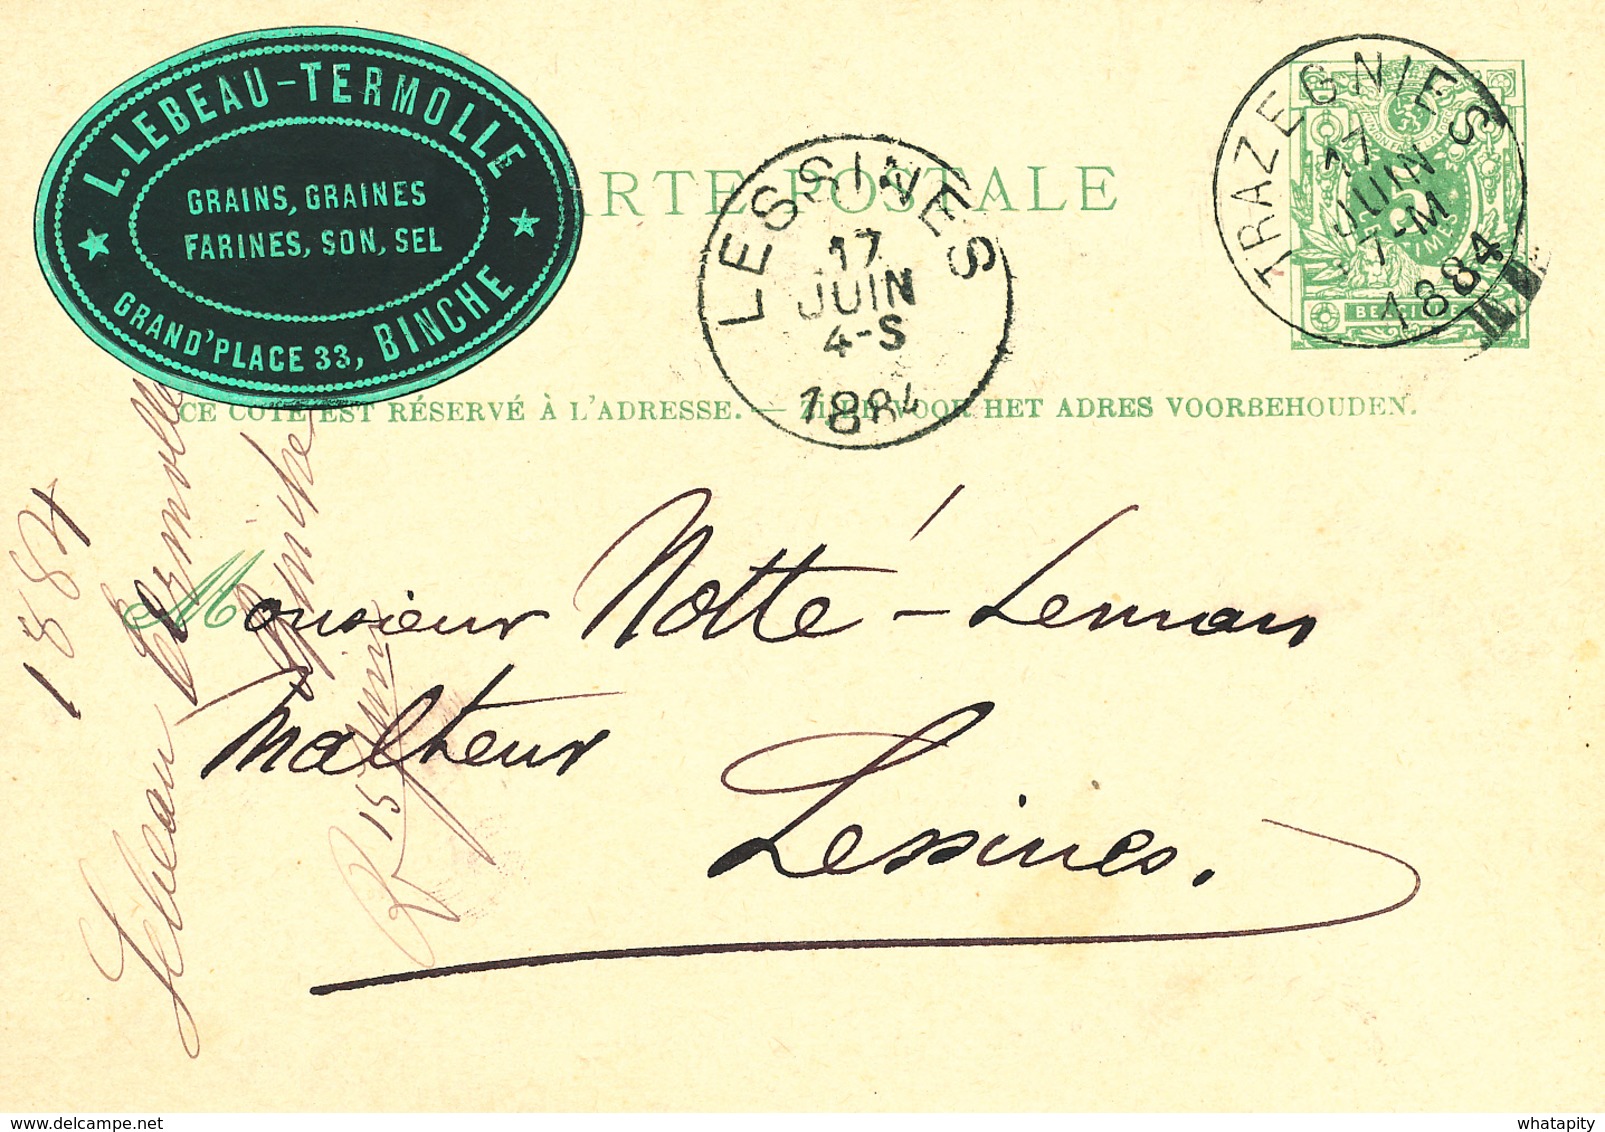 L. LEBEAU-TERMOLLE
GRAINS, GRAINES
FARINES, SON, SEL
GRAND'PLACE 33, BINCHE
RTE POSTALE
LESSINES
17
JUIN
4-S
1884
TRAZEGNIES
17
JUIN
7-M
1884
CE CÔTÉ EST RÉSERVÉ À L'ADRESSE. — ZIJDE VOOR HET ADRES VOORBEHOUDEN.
Monsieur Notté-Leman
Malteur
Lessines.
1884
Lebeau Termolle
Binche
R 15 Juin
whatapity